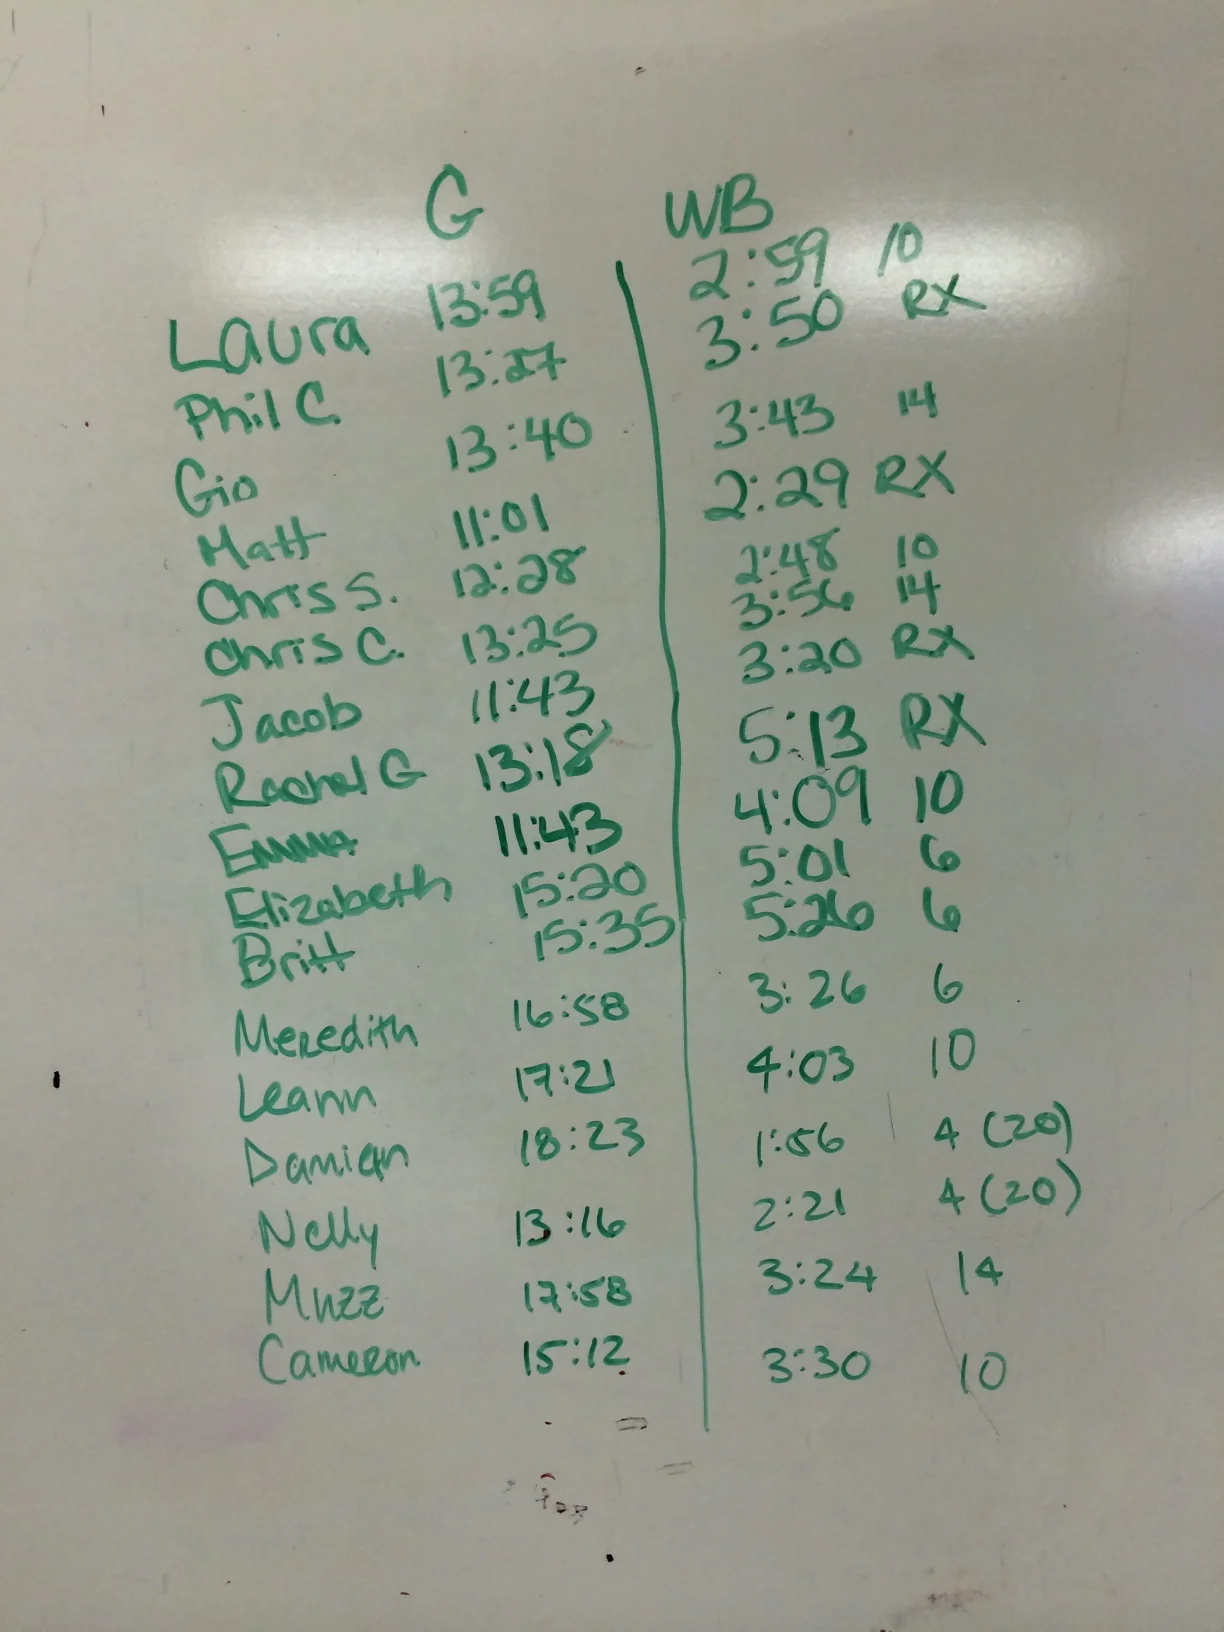 G WB
Laura 13:59 2:59 10
Phil C. 13:27 3:50 RX
Gio 13:40 3:43 14
Matt 11:01 2:29 RX
Chris S. 12:28 2:48 10
Chris C. 13:25 3:56 14
Jacob 11:43 3:20 RX
Rachel G 13:18 5:13 RX
Emma 11:43 4:09 10
Elizabeth 15:20 5:01 6
Britt 15:35 5:26 6
Meredith 16:58 3:26 6
Leann 17:21 4:03 10
Damian 18:23 1:56 4 (20)
Nelly 13:16 2:21 4 (20)
Muzz 17:58 3:24 14
Cameron 15:12 3:30 10